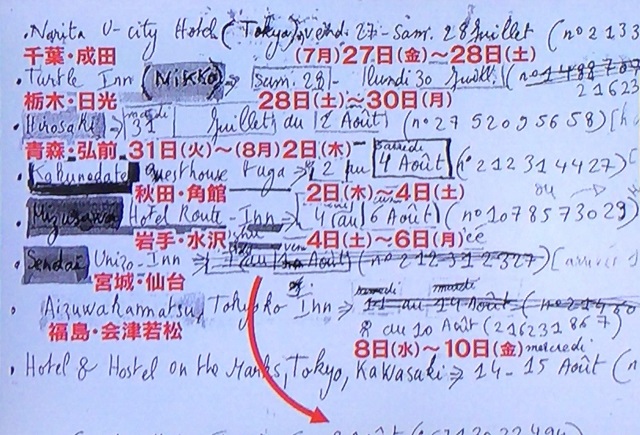 . Narita U-city Hotel (Tokyo), vend. 27 - Sam. 28 Juillet (n° 2133
千葉・成田 (7月)27日(金)〜28日(土)
. Turtle Inn (Nikko) ⇒ sam. 28 - lundi 30 Juill
21623
栃木・日光 28日(土)〜30日(月)
. Hirosaki ⇒ mardi 31 Juillet au 2 Août (n° 27 5209 5658) [h
青森・弘前 31日(火)〜(8月)2日(木)
Kakunodate Guesthouse Fuga ⇒ 2 au samedi 4 Août (n° 212314427)
秋田・角館 2日(木)〜4日(土)
Mizusawa Hotel Route-Inn ⇒ 4 au 6 Août (n° 1078573029)
岩手・水沢 4日(土)〜6日(月)
. Sendai Unizo Inn ⇒ (n° 212312327) [arrivée
宮城・仙台
. Aizuwakamatsu, Toyoko Inn ⇒ 11 au 14 Août
8 au 10 Août (216231867)
福島・会津若松 8日(水)〜10日(金)
mercredi
. Hotel & Hostel on the Marks, Tokyo, Kawasaki ⇒ 14 - 15 Août (n